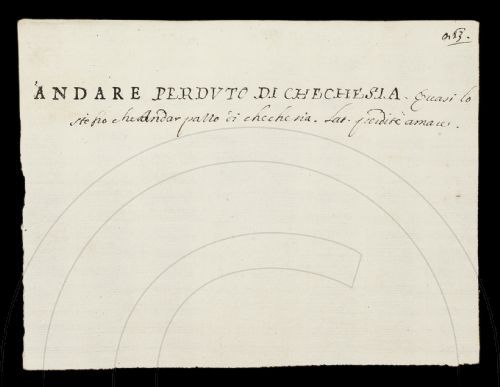 ANDARE PERDVTO DI CHECHESIA. Quasi lo
stesso che Andar pazzo di chechesia. Lat. perditè amare.